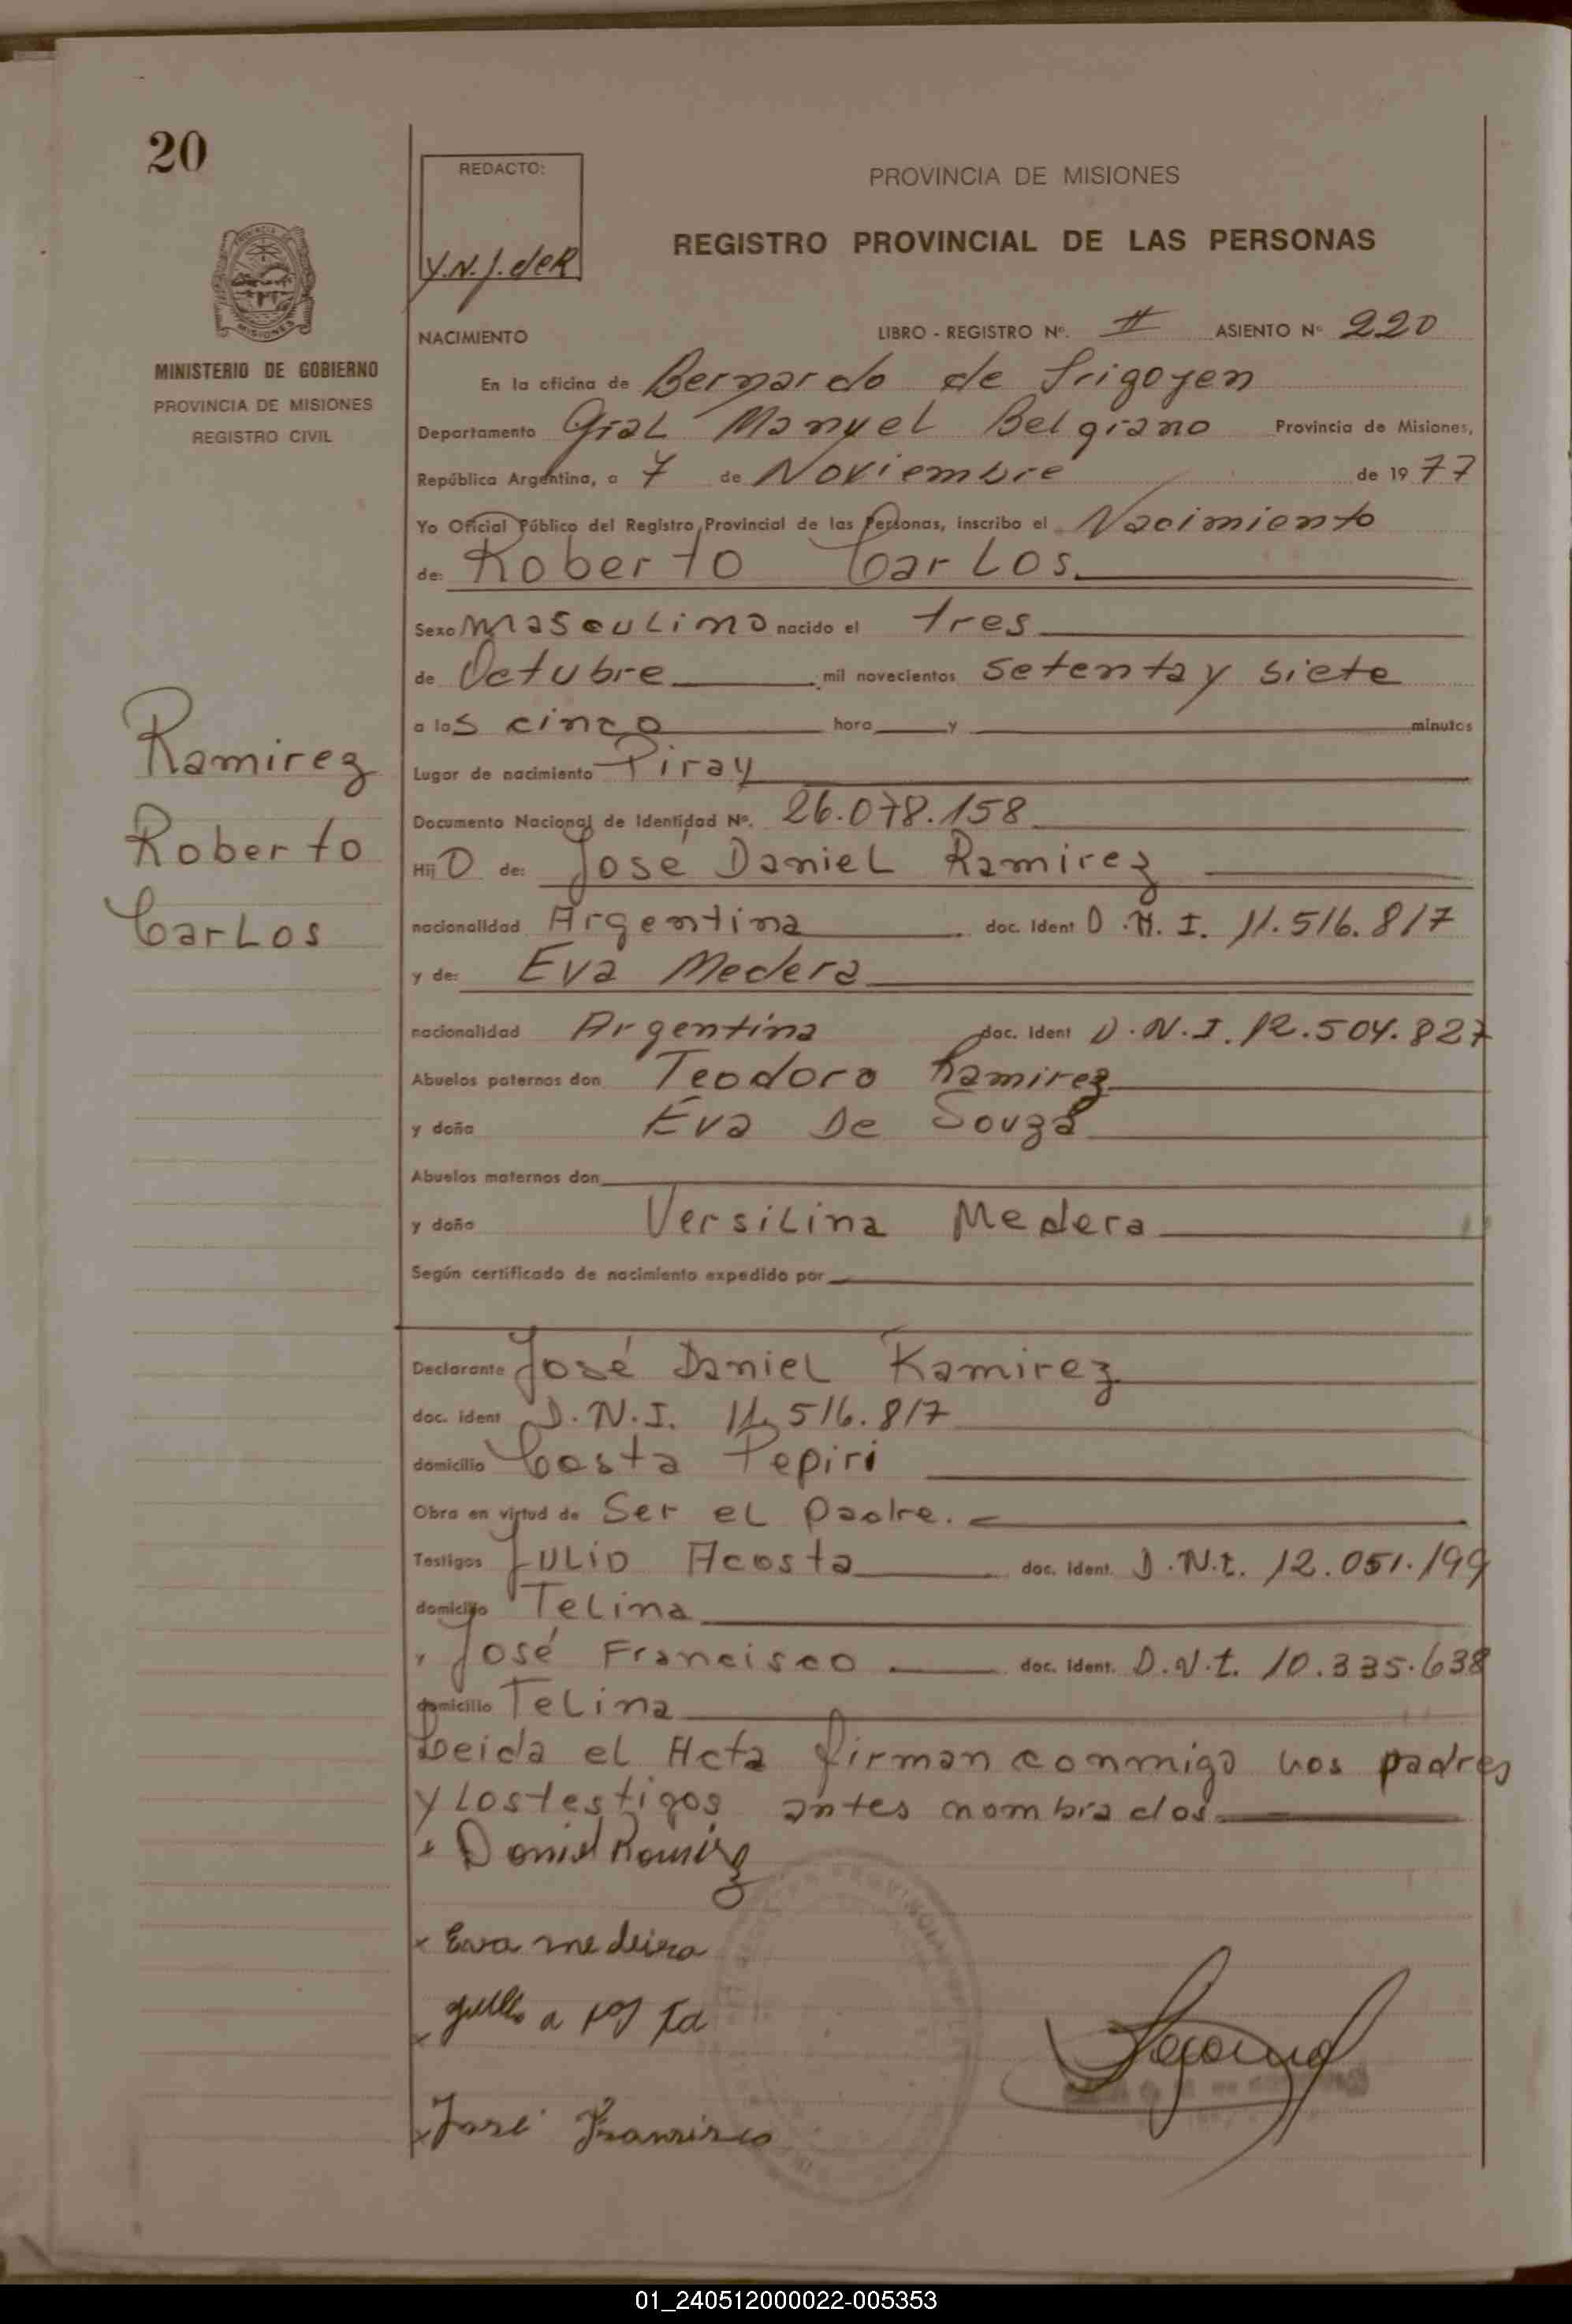 20
REDACTO:
Y.N.J. deR
PROVINCIA DE MISIONES
REGISTRO PROVINCIAL DE LAS PERSONAS
MINISTERIO DE GOBIERNO
PROVINCIA DE MISIONES
REGISTRO CIVIL
NACIMIENTO LIBRO - REGISTRO Nº. II ASIENTO Nº 220
En la oficina de Bernardo de Irigoyen
Departamento Gral Manuel Belgrano Provincia de Misiones,
República Argentina, a 7 de Noviembre de 1977
Yo Oficial Público del Registro Provincial de las Personas, inscribo el Nacimiento
de: Roberto Carlos
Sexo masculino nacido el tres
de Octubre mil novecientos setenta y siete
a las cinco hora y minutos
Lugar de nacimiento Piray
Documento Nacional de Identidad Nº. 26.078.158
Hijo de: José Daniel Ramirez
nacionalidad Argentina doc. Ident D.N.I. 11.516.817
y de: Eva Medera
nacionalidad Argentina doc. Ident D.N.I. 12.504.827
Abuelos paternos don Teodoro Ramirez
y doña Eva De Souza
Abuelos maternos don
y doña Versilina Medera
Según certificado de nacimiento expedido por
Ramirez
Roberto
Carlos
Declarante José Daniel Ramirez
doc. ident D.N.I. 11.516.817
domicilio Costa Pepiri
Obra en virtud de Ser el padre.
Testigos Julio Acosta doc. Ident. D.N.I. 12.051.199
domicilio Telina
y José Francisco doc. Ident. D.N.I. 10.335.638
domicilio Telina
Leida el Acta firman conmigo los padres
y los testigos antes nombrados
x Daniel Ramirez
x Eva medeira
x José Francisco
01_240512000022-005353